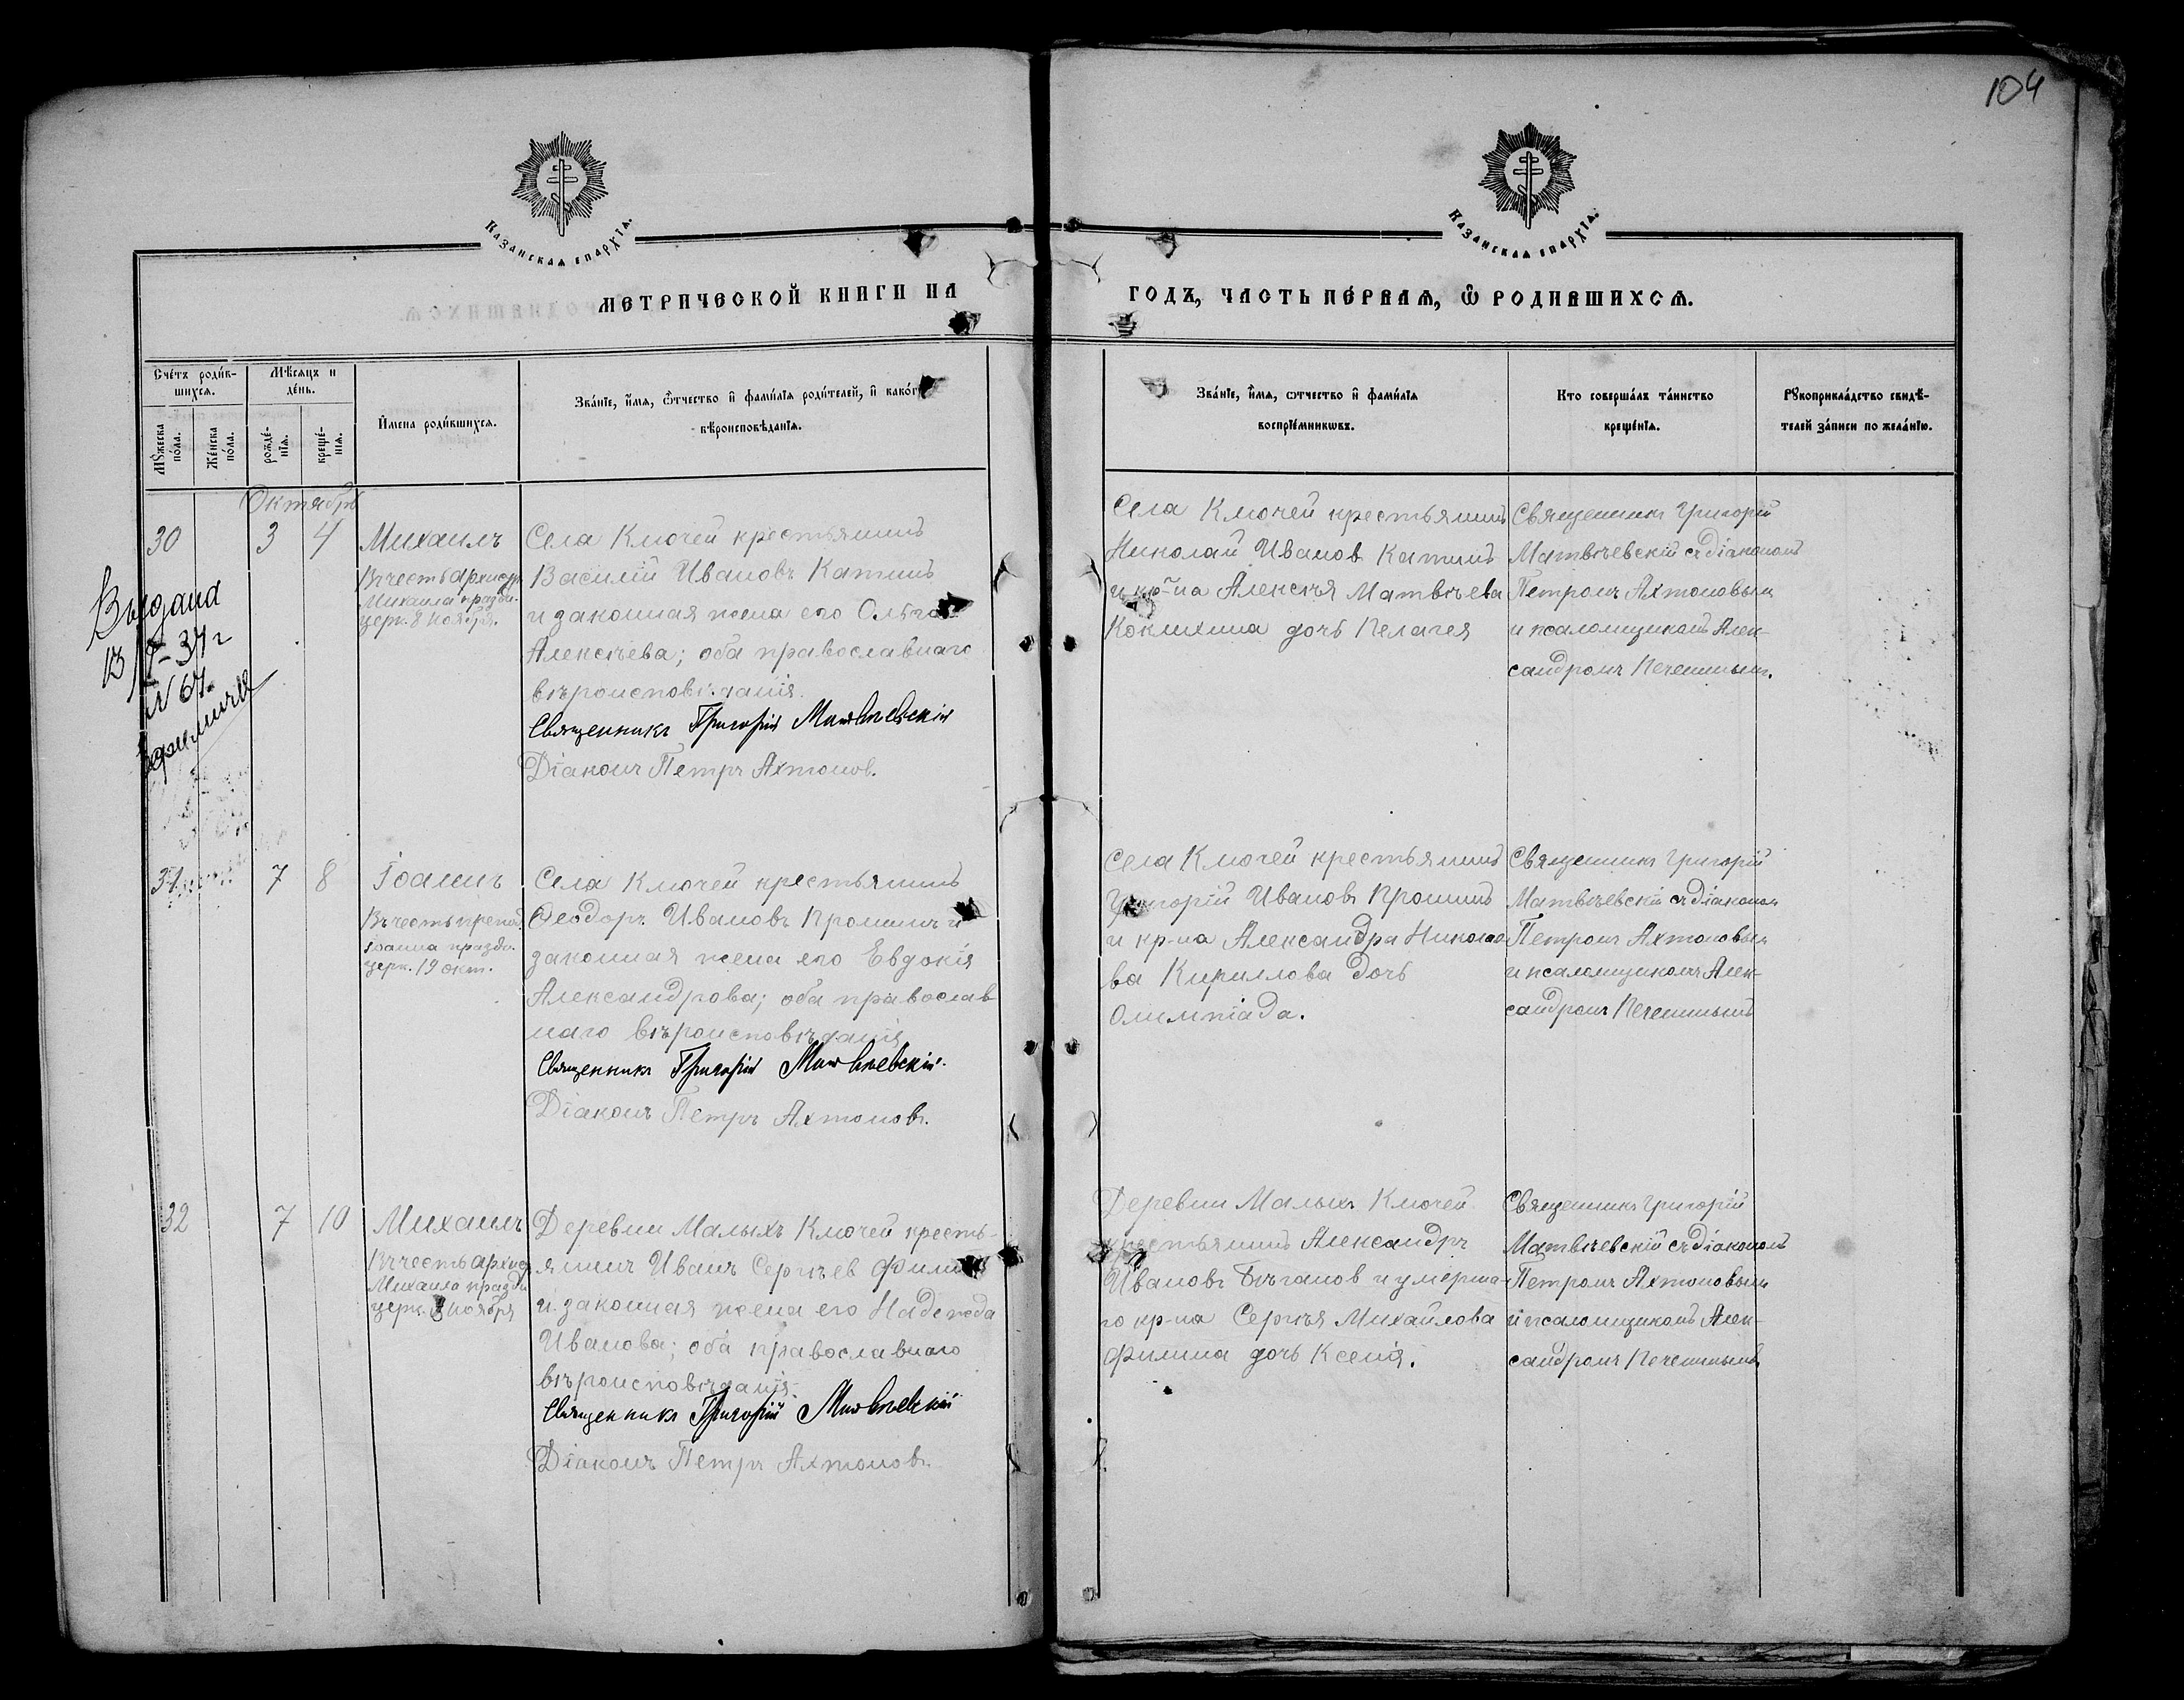 104
Казанскаѧ епархїѧ.
Казанскаѧ епархїѧ.
МЕТРИЧЕСКОЙ КНИГИ НА
ГОДЪ, ЧАСТЬ ПЕРВАѦ, Ѿ РОДИВШИХСѦ.
Счетъ родив-
шихсѧ.
Мѣсѧцъ и
день.
Мꙋжеска
пола.
Женска
пола.
рожде-
нїѧ.
креще-
нїѧ.
Имена родившихсѧ.
Званїе, имѧ, ѿчество и фамилїѧ родителей, и каког
вѣроисповѣданїѧ.
Званїе, имѧ, ѿчество и фамилїѧ
воспрїемникѡвъ.
Кто совершалъ таинство
крещенїѧ.
Рꙋкоприкладство свидѣ-
телей записи по желанїю.
Октябрь
30
3
4
Михаилъ
Въ честь Архистр.
Михаила праздн.
церк. 8 ноября.
Села Ключей крестьянинъ
Василій Ивановъ Катинъ
и законная жена его Ольга
Алексѣева; оба православнаго
вѣроисповѣданія.
Священникъ Григорій Матвѣевскій
Діаконъ Петръ Ахтоновъ.
Села Ключей крестьянинъ
Николай Ивановъ Катинъ
и кр-на Алексѣя Матвѣева
Коклихина дочь Пелагея
Священникъ Григорій
Матвѣевскій съ діакономъ
Петромъ Ахтоновым
и псаломщикомъ Алек-
сандромъ Печенинымъ.
Выдана
№ 67.
31
7
8
Іоаннъ
Въ честь препод.
Іоанна праздн.
церк. 19 окт.
Села Ключей крестьянинъ
Ѳеодоръ Ивановъ Пронинъ и
законная жена его Евдокія
Александрова; оба православ
наго вѣроисповѣданія
Священникъ Григорій Матвѣевскій.
Діаконъ Петръ Ахтоновъ.
Села Ключей крестьянинъ
Григорій Ивановъ Пронинъ
и кр-на Александра Николае
ва Кириллова дочь
Олимпіада.
Священникъ Григорій
Матвѣевскій съ діакономъ
Петромъ Ахтоновым
и псаломщикомъ Алек-
сандромъ Печенинымъ
32
7
10
Михаилъ
Въ честь Архист
Михаила праздн
церк. 8 ноября
Деревни Малыхъ Ключей кресть-
янинъ Иванъ Сергѣев Филин
и законная жена его Надежда
Иванова; оба православнаго
вѣроисповѣданія.
Священникъ Григорій Матвѣевскій
Діаконъ Петръ Ахтоновъ.
Деревни Малыхъ Ключей
крестьянинъ Александръ
Ивановъ Бѣгановъ и умерша-
го кр-на Сергѣя Михайлова
Филина дочь Ксенія.
Священникъ Григорій
Матвѣевскій съ діакономъ
Петромъ Ахтоновым
и псаломщикомъ Алек-
сандромъ Печенинымъ